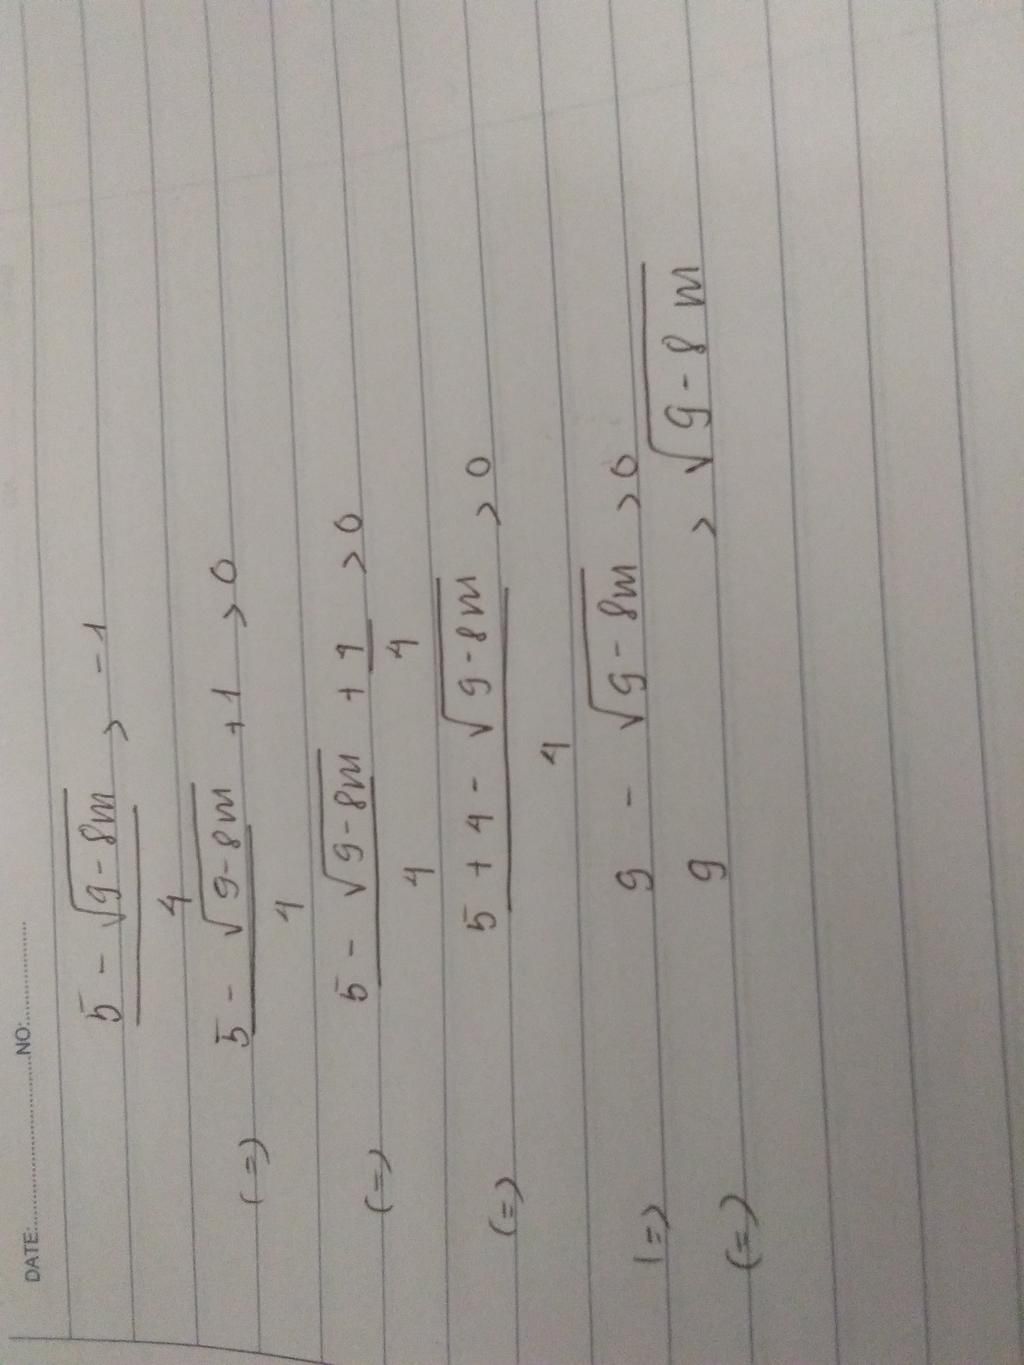 DATE:........................NO:................
5 - √9-8m > -1
4
(=) 5 - √9-8m +1 > 0
4
(=) 5 - √9-8m + 4 > 0
4 4
(=) 5 + 4 - √9-8m > 0
4
(=) 9 - √9-8m > 0
(=) 9 > √9-8m